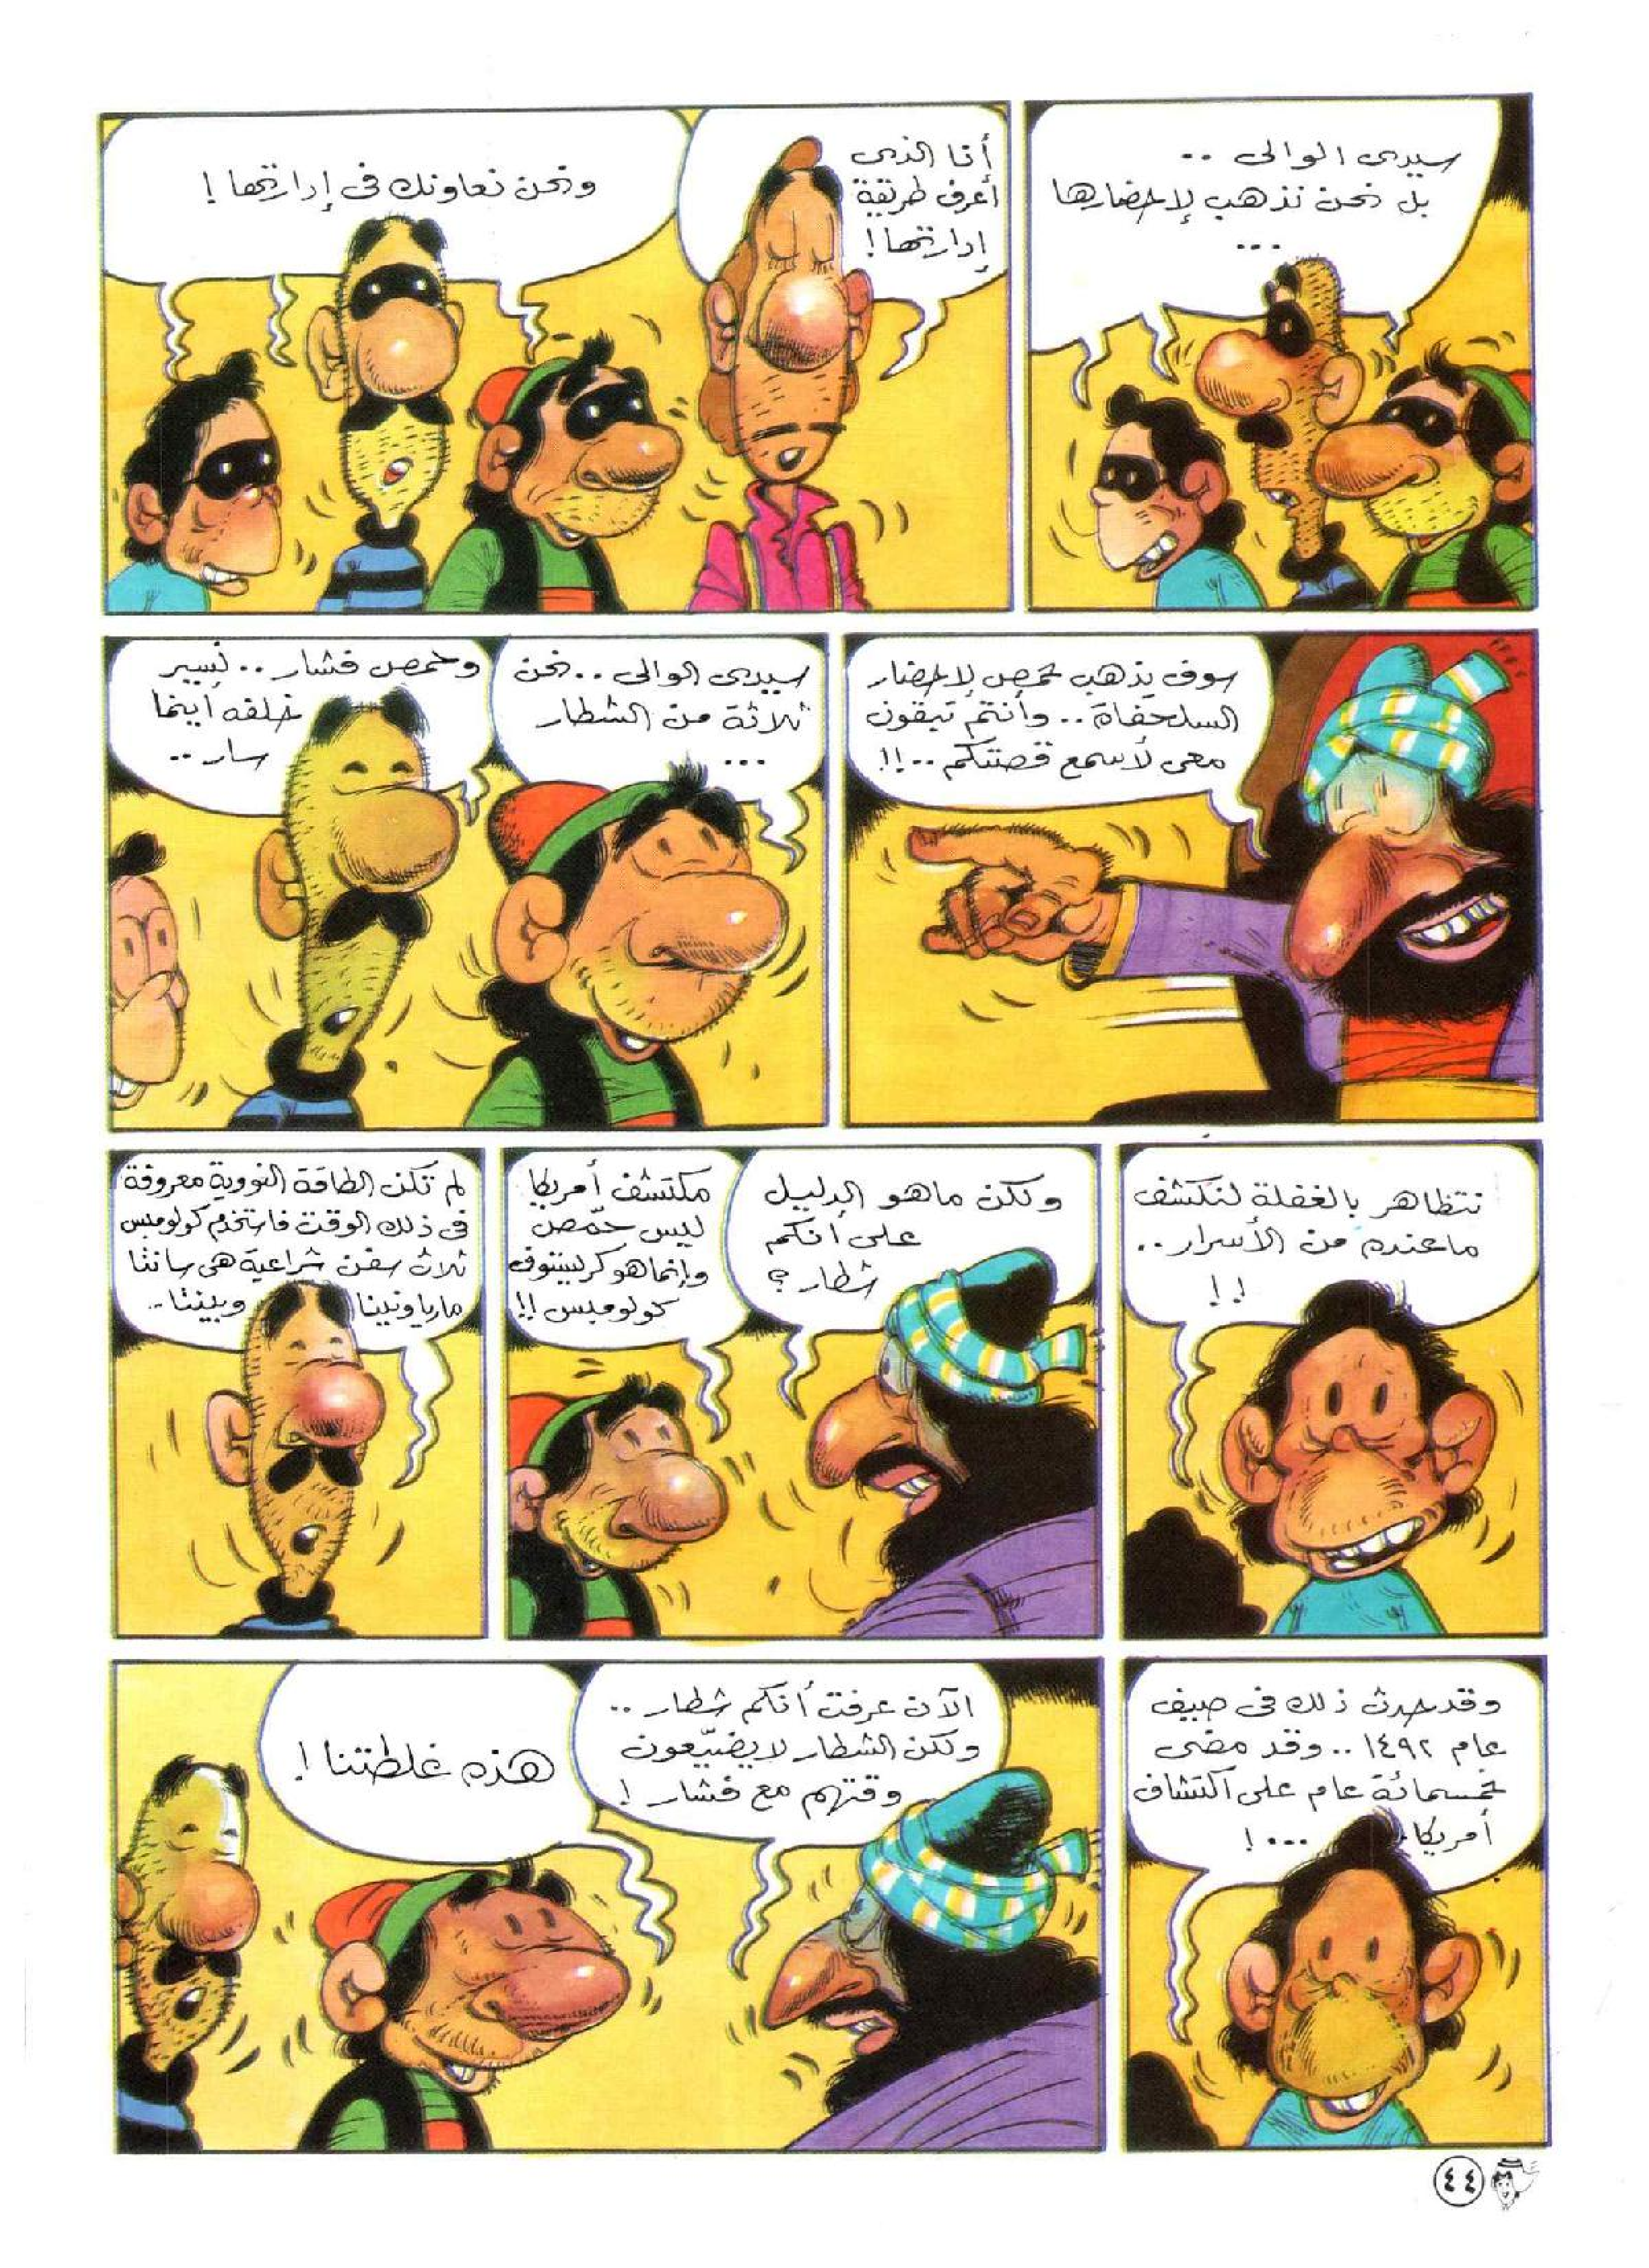 سيدى الوالى ..
بل نحن نذهب لإحضارها
...
أنا الذى
أعرف طريقة
إدارتها !
ونحن نعاونك فى إدارتها !
سوف يذهب حمص لإحضار
السلحفاة .. وأنتم تبقون
معى لأسمع قصتكم ..!!
سيدى الوالى .. نحن
ثلاثة من الشطار
...
وحمص فشار .. نسير
خلفه أينما
سار ..
نتظاهر بالغفلة لنكشف
ماعنده من الأسرار ..
!!
ولكن ماهو الدليل
على أنكم
شطار ؟
مكتشف أمريكا
ليس حمّص
وإنما هو كريستوف
كولومبس !!
لم تكن الطاقة النووية معروفة
فى ذلك الوقت فاستخدم كولومبس
ثلاث سفن شراعية هى سانتا
ماريا ونينا وبينتا ..
وقد حدث ذلك فى صيف
عام ١٤٩٢ .. وقد مضى
خمسمائة عام على اكتشاف
أمريكا ...!
الآن عرفت أنكم شطار ..
ولكن الشطار لا يضيّعون
وقتهم مع فشار !
هذه غلطتنا !
٤٤